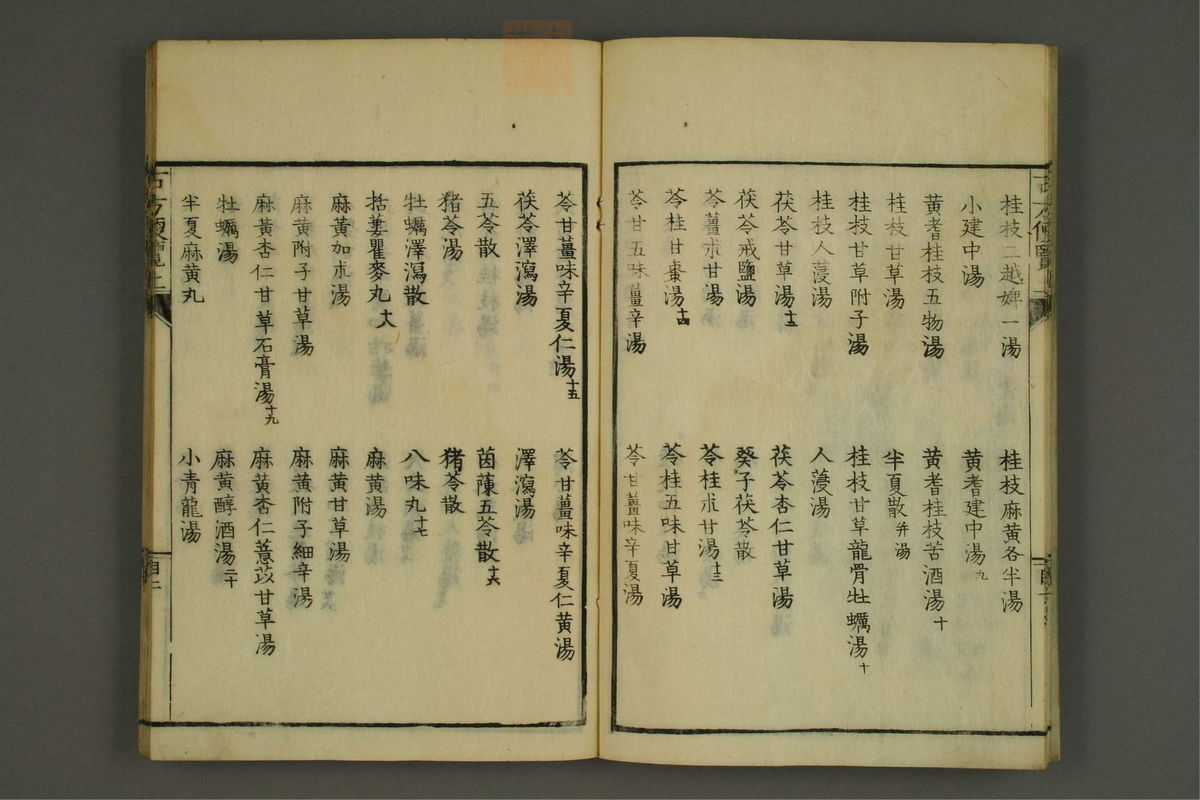 桂枝二越婢一湯
桂枝麻黄各半湯
小建中湯
黄耆建中湯九
黄耆桂枝五物湯
黄耆桂枝苦酒湯十
桂枝甘草湯
半夏散并湯
桂枝甘草附子湯
桂枝甘草龍骨牡蠣湯十
桂枝人蓡湯
人蓡湯
茯苓甘草湯十二
茯苓杏仁甘草湯
茯苓戒鹽湯
葵子茯苓散
苓薑朮甘湯
苓桂朮甘湯十三
苓桂甘棗湯十四
苓桂五味甘草湯
苓甘五味薑辛湯
苓甘薑味辛夏湯
苓甘薑味辛夏仁湯十五
苓甘薑味辛夏仁黄湯
茯苓澤瀉湯
澤瀉湯
五苓散
茵蔯五苓散十六
猪苓湯
猪苓散
牡蠣澤瀉散
八味丸十七
括蔞瞿麥丸十八
麻黄湯
麻黄加朮湯
麻黄甘草湯
麻黄附子甘草湯
麻黄附子細辛湯
麻黄杏仁甘草石膏湯十九
麻黄杏仁薏苡甘草湯
牡蠣湯
麻黄醇酒湯二十
半夏麻黄丸
小青龍湯